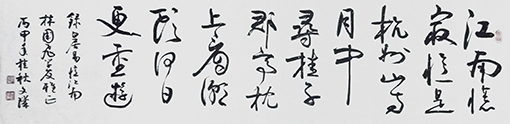 江南憶
最憶是
杭州山寺
月中
尋桂子
郡亭枕
上看潮
頭何日
更重遊
錄白居易憶江南
林園友人雅正
丙申年桂秋